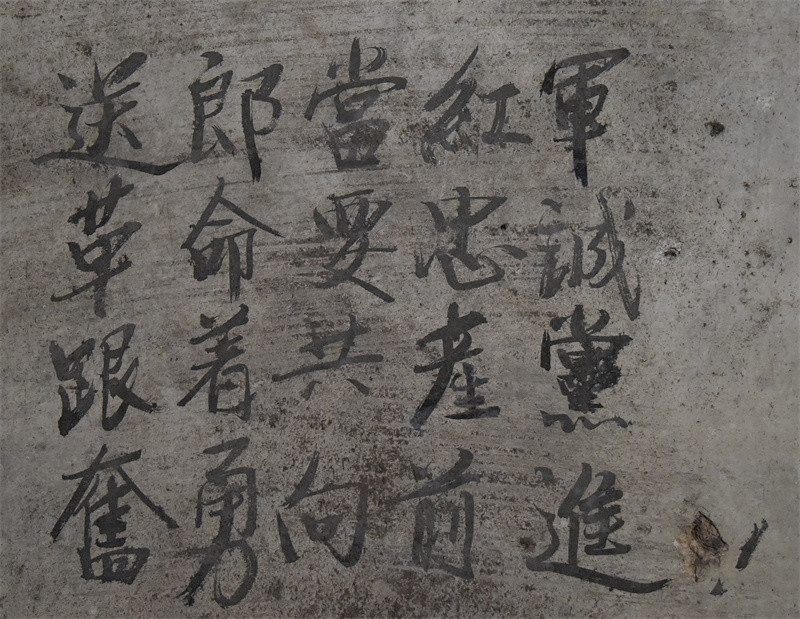 送郎當紅軍
革命要忠誠
跟着共產黨
奮勇向前進！